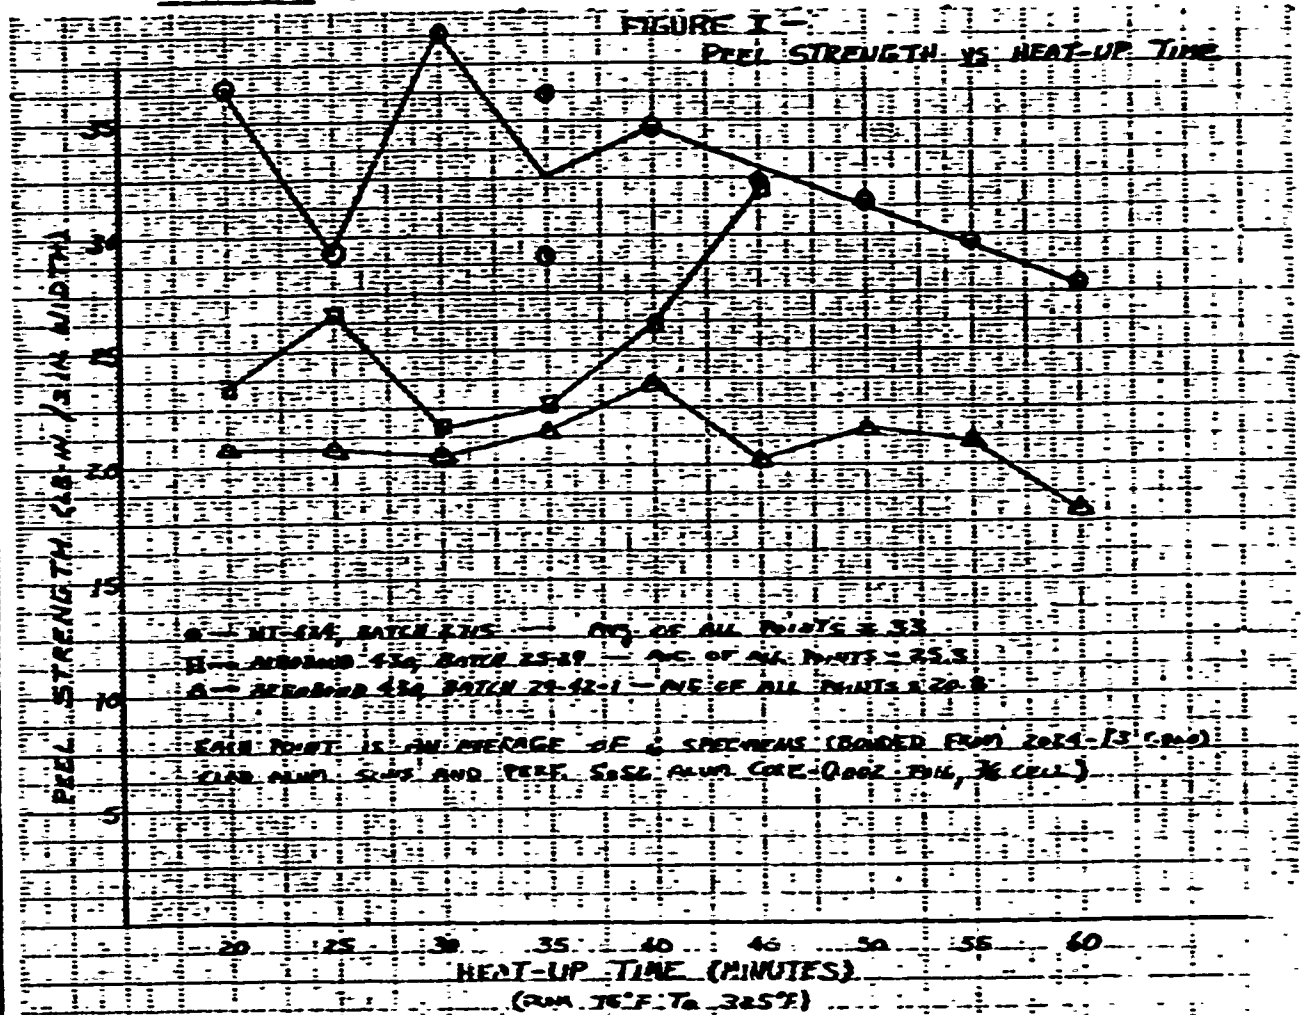 FIGURE I -
PEEL STRENGTH VS HEAT-UP TIME
PEEL STRENGTH (LB-IN/3 IN WIDTH)
35
30
25
20
15
10
5
O - HT-424, BATCH - AVG OF ALL POINTS = 33
□ - AEROBOND 430, BATCH 25-29 - AVG OF ALL POINTS = 25.3
△ - AEROBOND 430, BATCH 29-42-1 - AVG OF ALL POINTS = 20.8
EACH POINT IS AN AVERAGE OF 6 SPECIMENS (BONDED FROM 2024-T3
CLAD ALUM SKINS AND PERF. 5052 ALUM CORE-0.002 CELL)
20 25 30 35 40 45 50 55 60
HEAT-UP TIME (MINUTES)
(FROM 75°F TO 325°F)